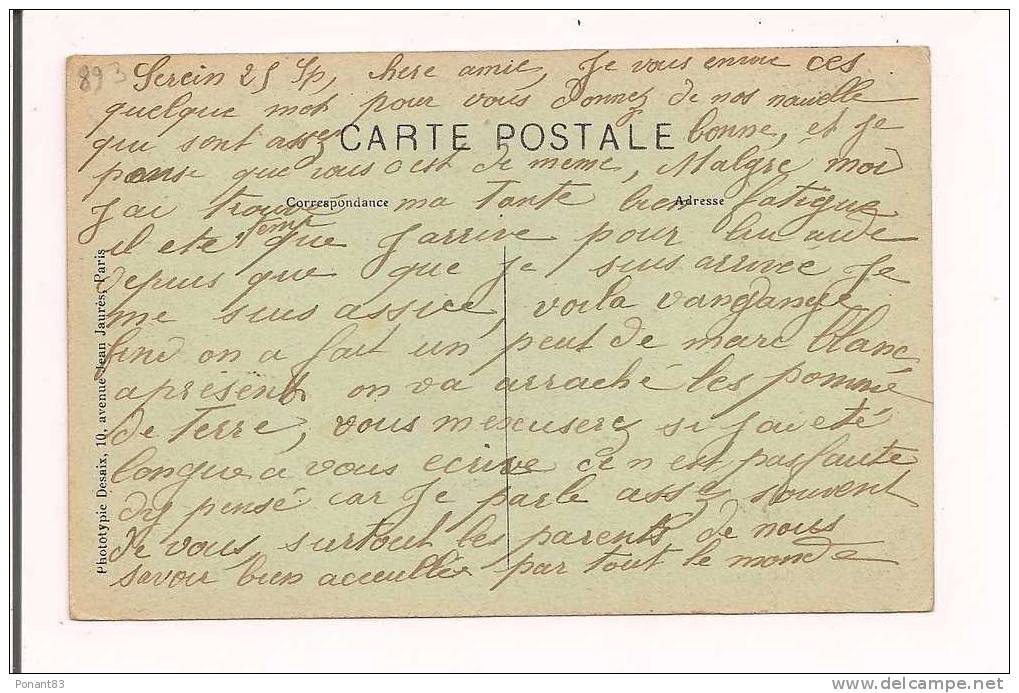 893
Serein 25 Sp, chere amie, Je vous envoie ces
quelque mot pour vous donnez de nos nouvelle
qui sont assez bonne, et Je
CARTE POSTALE
pense que vous c'est de meme, Malgré moi
Correspondance
Adresse
J'ai trouvé ma tante bien fatigue
il ete teme que J'arrive pour lui aide
depuis que que Je suis arrivee Je
me suis assice, voila vandange
fini on a fait un peut de marc blanc
apresent on va arraché les pomme
de terre, vous m'excuserez si J'ai eté
longue a vous ecrire ce n'est pas faute
d'y pensé car Je parle assez souvent
de vous surtout les parents de nous
savoir bien accullie par tout le monde
Phototypie Desaix, 10, avenue Jean Jaurès, Paris
Ponant83
delcampe.net